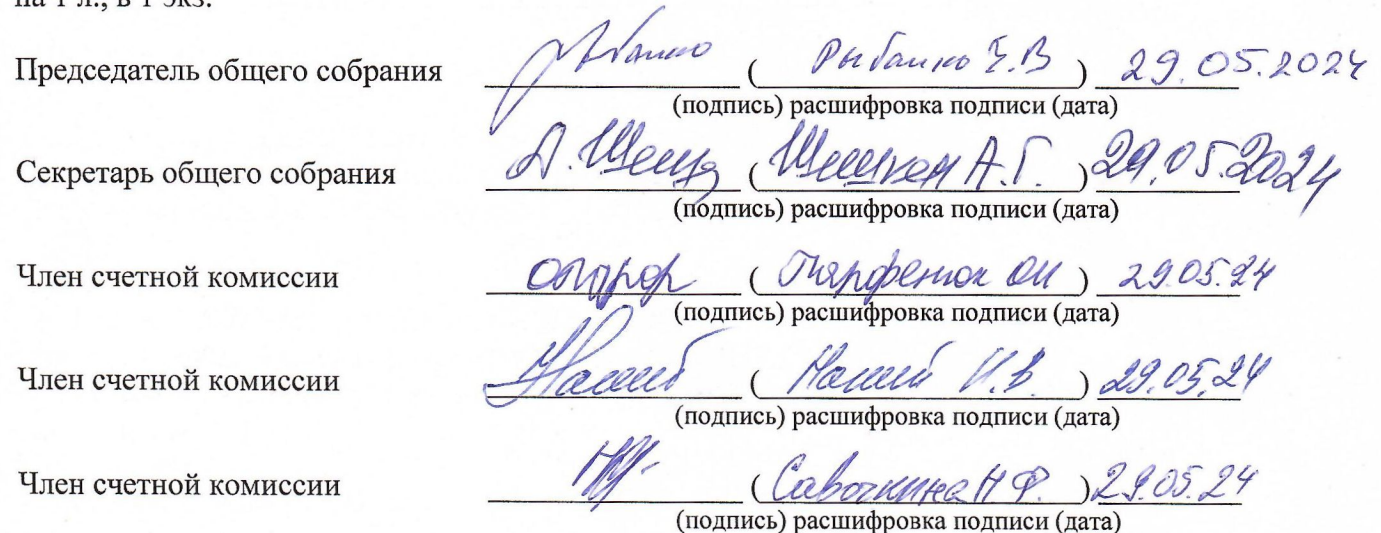 на 1 л., в 1 экз.
Председатель общего собрания ( Рыбалко Е.В ) 29.05.2024
(подпись) расшифровка подписи (дата)
Секретарь общего собрания А. ( А.Г. ) 29.05.2024
(подпись) расшифровка подписи (дата)
Член счетной комиссии ( Парфенюк ОИ ) 29.05.24
(подпись) расшифровка подписи (дата)
Член счетной комиссии ( И.В. ) 29.05.24
(подпись) расшифровка подписи (дата)
Член счетной комиссии ( Савочкина Н Ф. ) 29.05.24
(подпись) расшифровка подписи (дата)